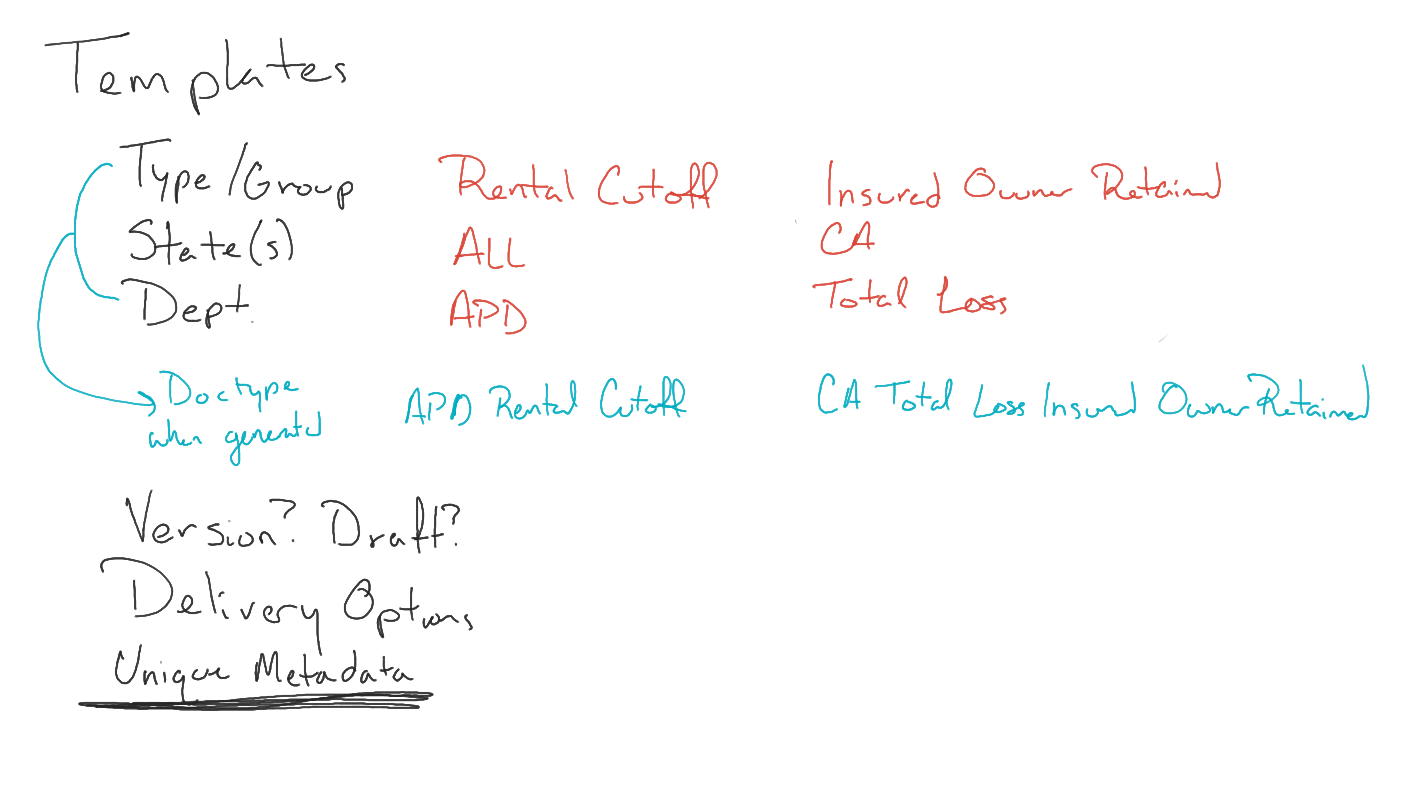 Templates
Type/Group Rental Cutoff Insured Owner Retained
State(s) ALL CA
Dept. APD Total Loss
Doctype APD Rental Cutoff CA Total Loss Insured Owner Retained
when generated
Version? Draft?
Delivery Options
Unique Metadata